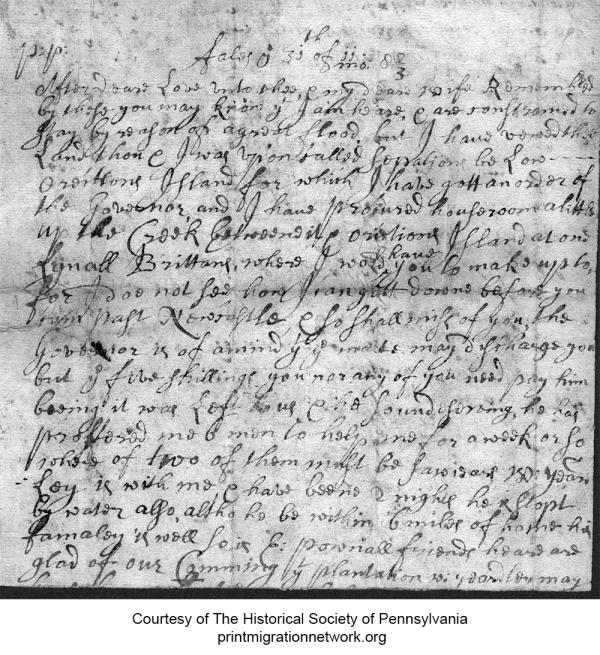 ffales ye 31th of 11 mo: 82/3
After deare Love unto thee & my deare wife Remembred
by these you may know yt I am heare & are constrained to
stay by reason of a great flood, but I have vewed the
Land thou & I was upon called Sepations be Low
Oreitions Island for which I have gott an order of
the Governor, and I have procured houseroom a litte
up the Creek betweend it & oreitions Island at one
Lynall Brittans, where I would have you to make up to,
for I doe not see how I can gett downe before you
com past Newcastle & so shall miss of you, the
governor is of a mind yt ye mate may discharge you
but ye five shillings you nor any of you need pay him
beeing it was Left to us & he found sherving, he has
proffered me 6 men to help me for a week or so
where of two of them must be sawiears W: Yeard
Ley is with me & have beene 2 nights he is stopt
by water also, altho he be within 6 miles of home his
famaley is well so is E: pownall friends heare are
glad of our Comming ye plantation W: yeardley may
Courtesy of The Historical Society of Pennsylvania
printmigrationnetwork.org